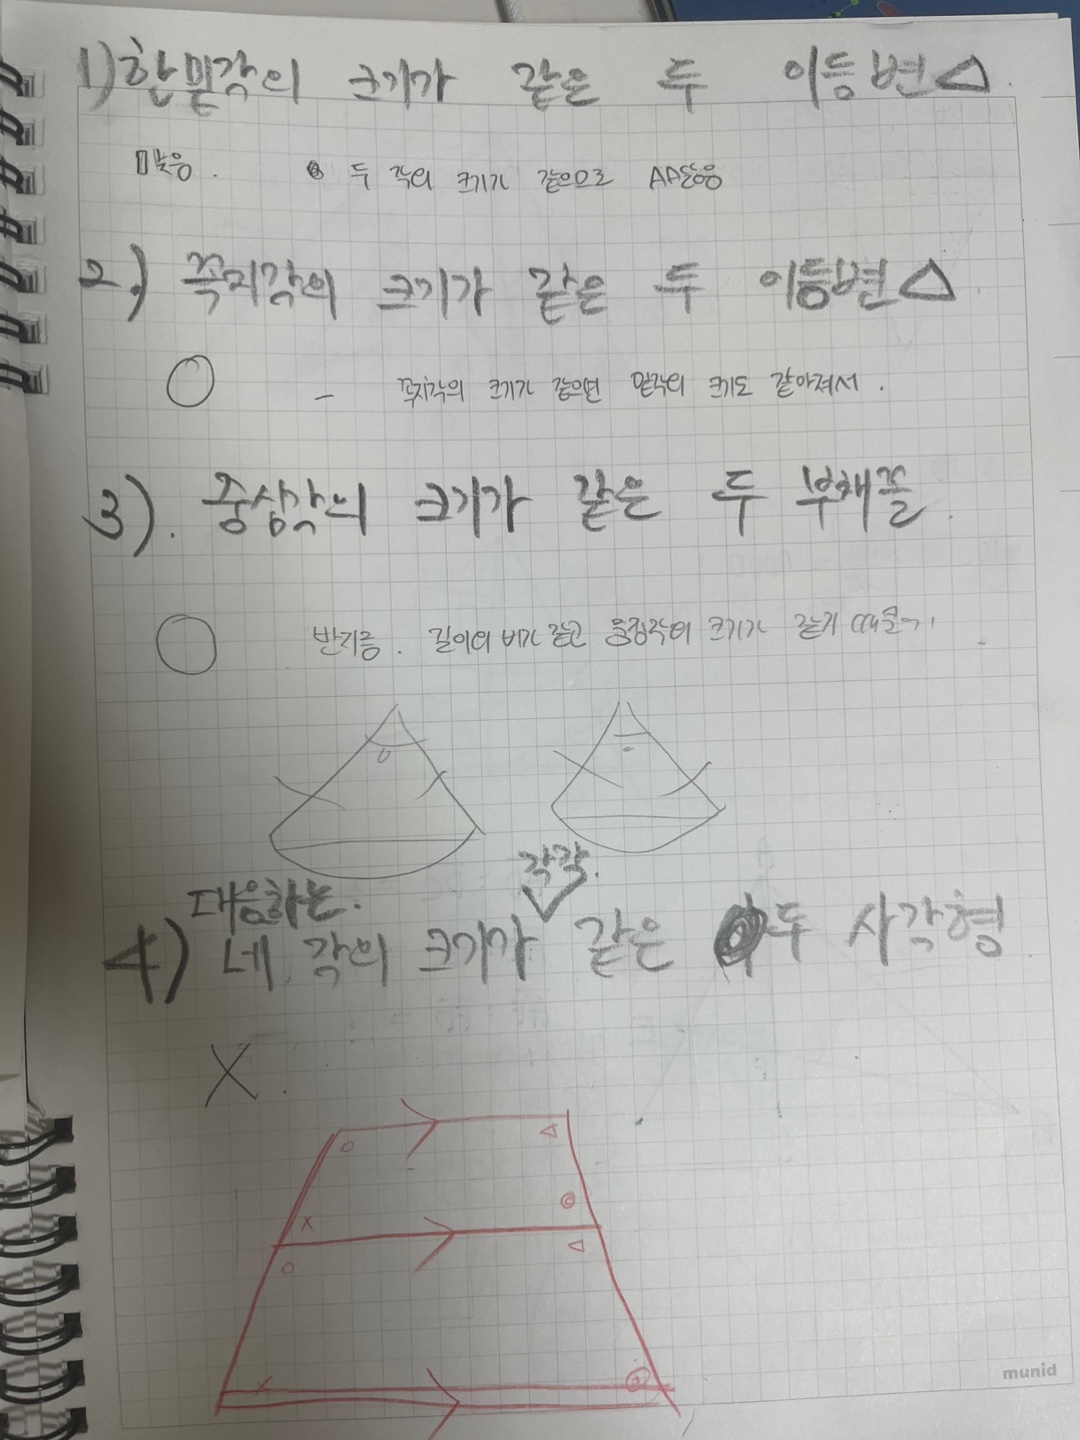 1) 한 밑각의 크기가 같은 두 이등변△.
맞음. 두 각의 크기가 같으므로 AA닮음
2.) 꼭지각의 크기가 같은 두 이등변△.
○ - 꼭지각의 크기가 같으면 밑각의 크기도 같아져서.
3). 중심각의 크기가 같은 두 부채꼴.
○ 반지름. 길이의 비가 같고 중심각의 크기가 같기 때문
각각.
대응하는.
4) 네 각의 크기가 같은 두 사각형
X.
munid